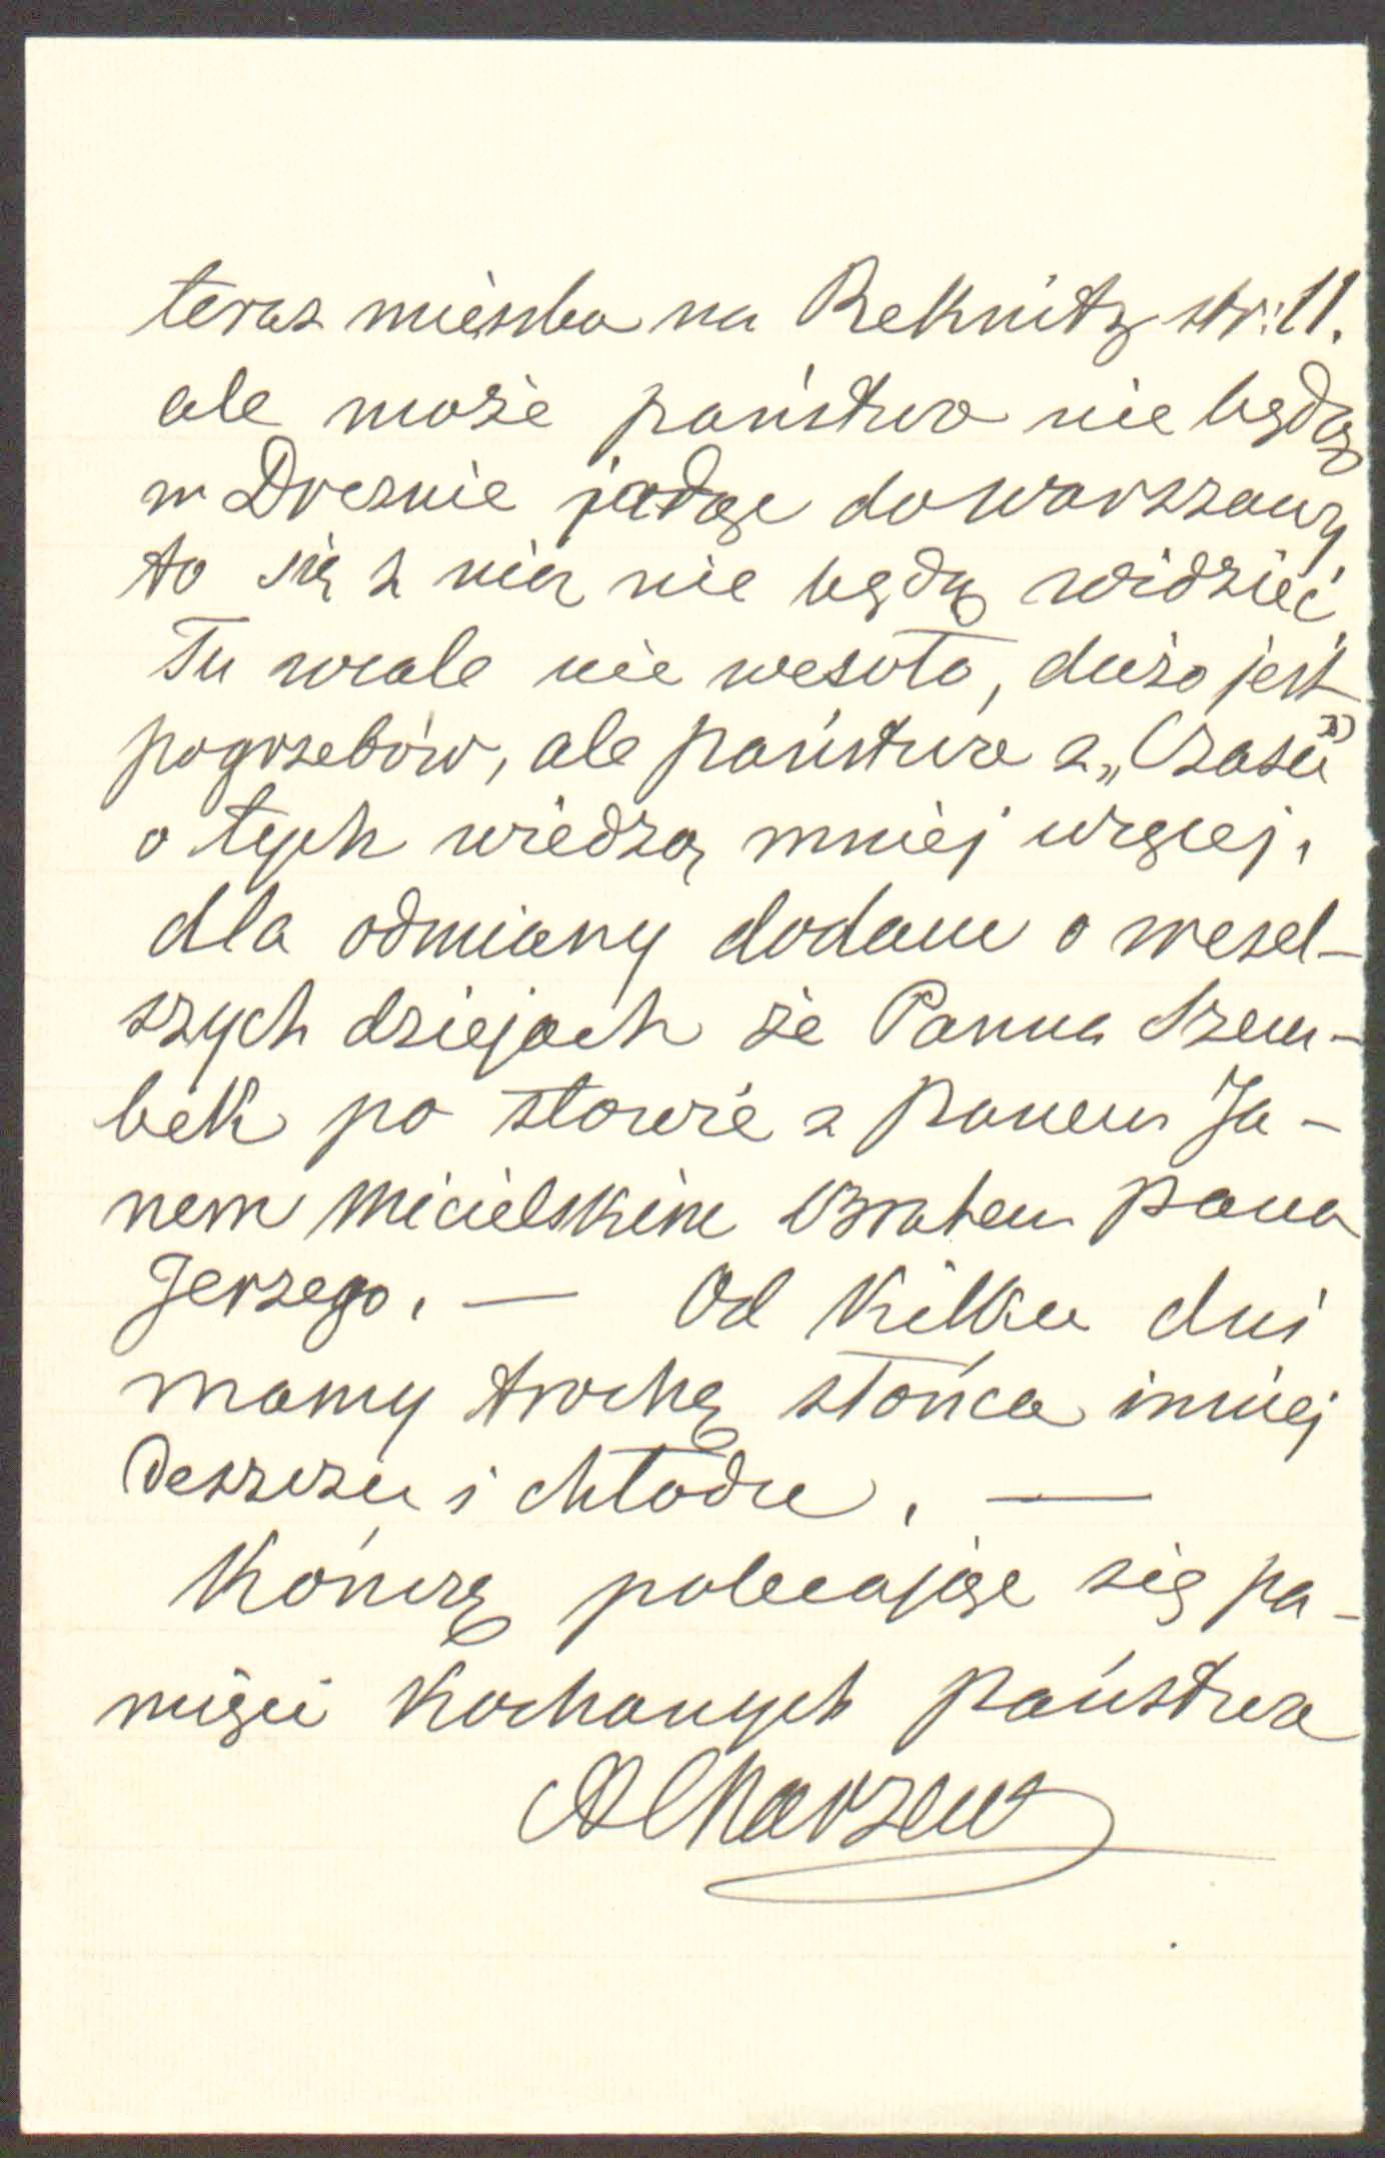 teraz mieszka na Reknitz str: 11.
ale może państwo nie będą
w Dreznie jadąc do Warszawy
to się z nią nie będą widzieć.
Tu wcale nie wesoło, dużo jest
pogrzebów, ale państwo z „Czasu"
o tych wiedzą mniej więcej,
dla odmiany dodam o wesel-
szych dziejach że Panna Szem-
bek po słowie z Panem Ja-
nem Micielskim Bratem Pana
Jerzego. — Od kilku dni
mamy trochę słońca i mniej
deszczu i chłodu. —
Kończę polecając się pa-
mięci Kochanych Państwa